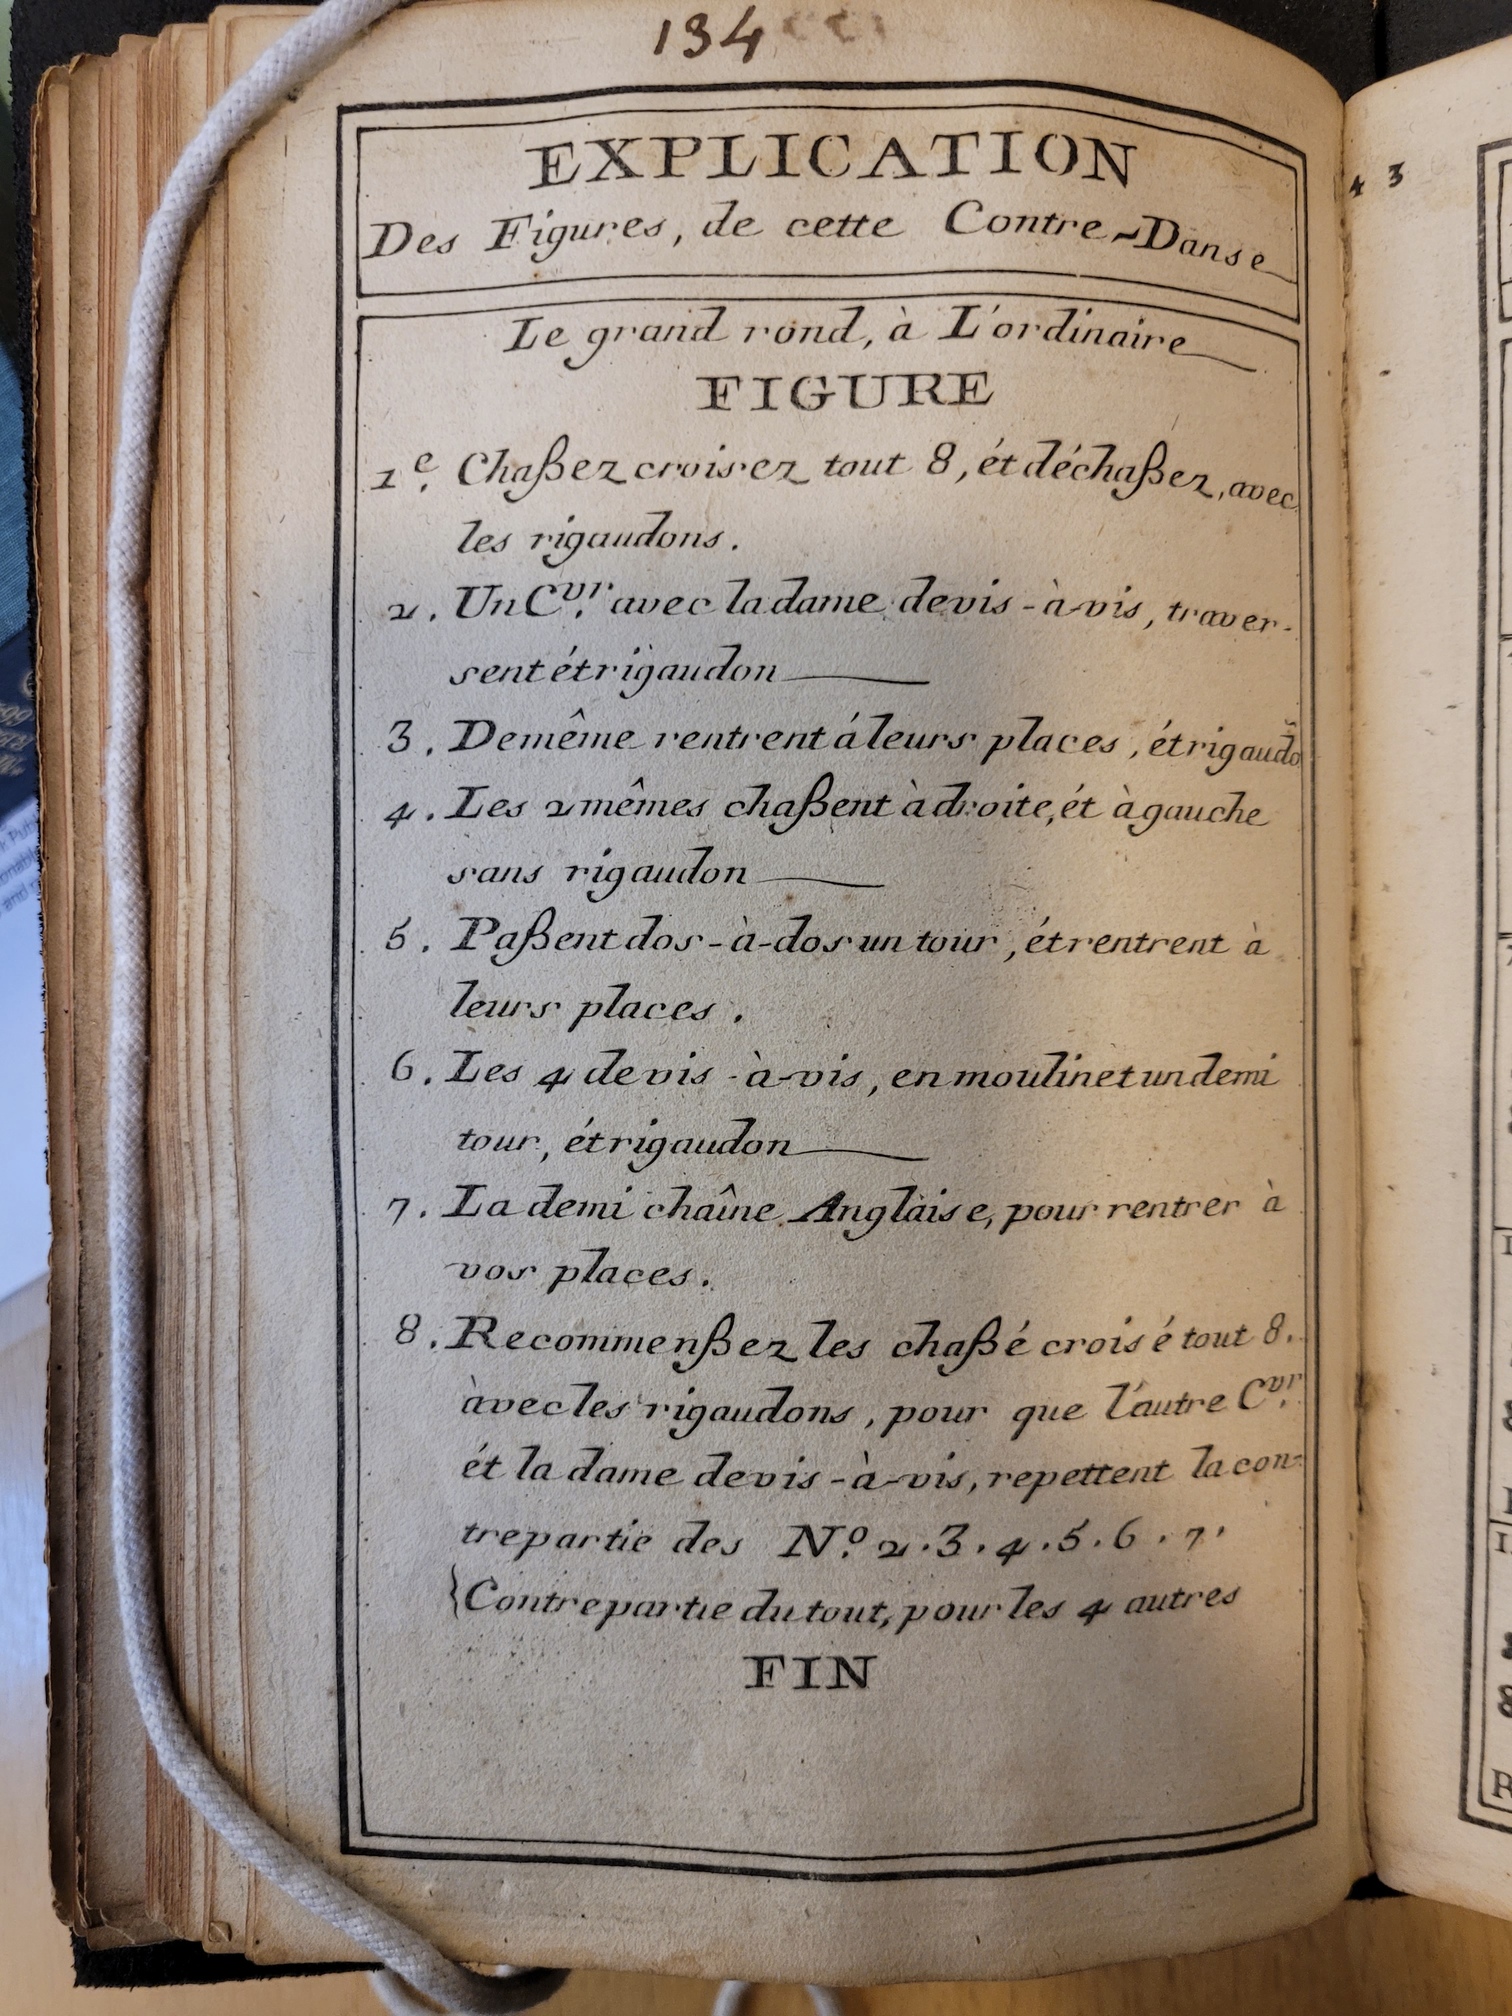 134
EXPLICATION
Des Figures, de cette Contre-Danse
Le grand rond, à L'ordinaire
FIGURE
1e. Chaßez croisez tout 8, ét déchaßez, avec
les rigaudons.
2. Un Cvr. avec la dame de vis-à-vis, traver-
sent ét rigaudon
3. De même rentrent á leurs places, ét rigaudõ
4. Les 2 mêmes chaßent à droite, ét à gauche
sans rigaudon
5. Paßent dos-à-dos un tour, ét rentrent à
leurs places.
6. Les 4 de vis-à-vis, en moulinet un demi
tour, ét rigaudon
7. La demi chaîne Anglaise, pour rentrer à
vos places.
8. Recommenßez les chaßé croisé tout 8.
àvec les rigaudons, pour que l'autre Cvr.
ét la dame de vis-à-vis, repettent la con-
trepartie des No. 2.3.4.5.6.7.
{Contrepartie du tout, pour les 4 autres
FIN
43